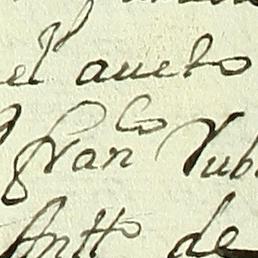 el aucto
fran^co Rub
Antt^o de